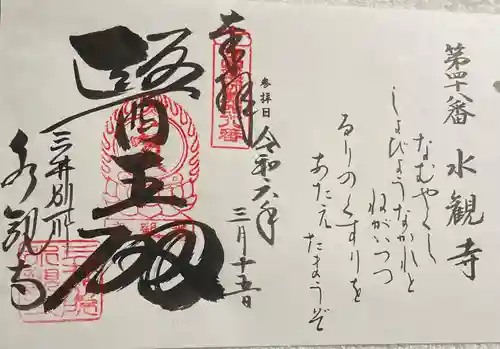 第四十八番 水観寺
なむやくし
しよびようなかれと
ねがいつつ
るりのくすりを
あたえたまうぞ
奉拝
参拝日
令和六年
三月十五日
醫王殿
三井別所
水観寺